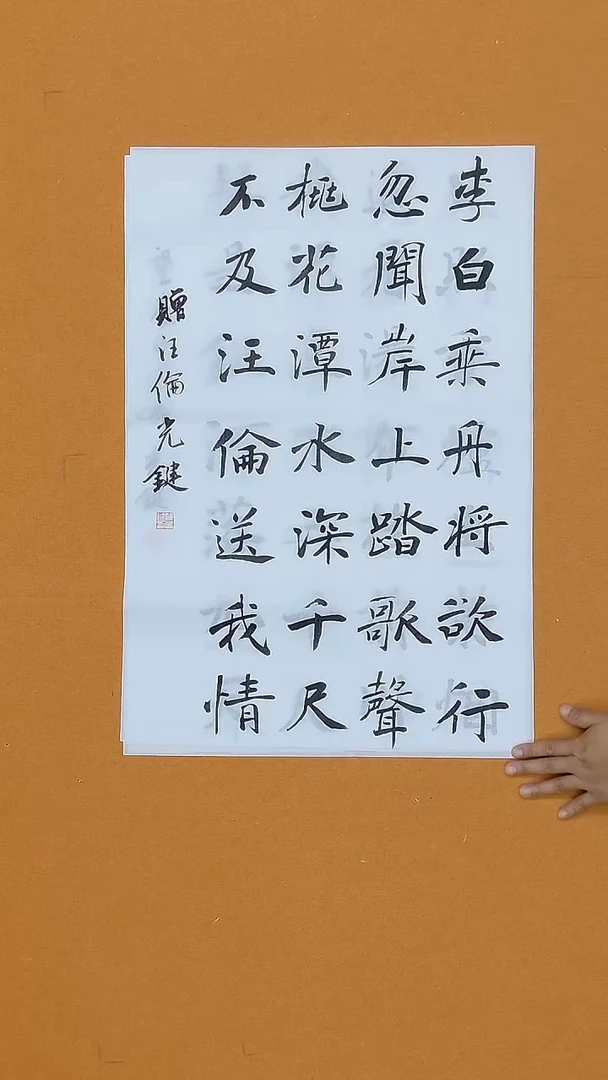 李白乘丹将欲行
忽聞岸上踏歌聲
桃花潭水深千尺
不及汪倫送我情
贈汪倫光鍵